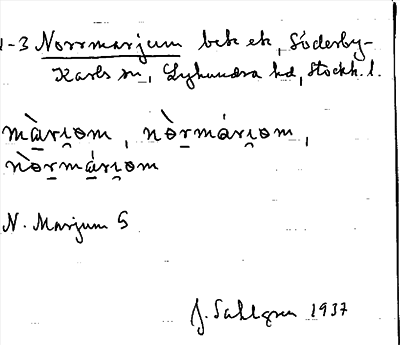 1-3 Norrmarjum bek ek, Söderby-
Karls sn, Lyhundra hd, Stockh. l.
màrı̯om, nòrmárı̯om,
nòrmárı̯om
N. Marjum G
J. Sahlgren 1937